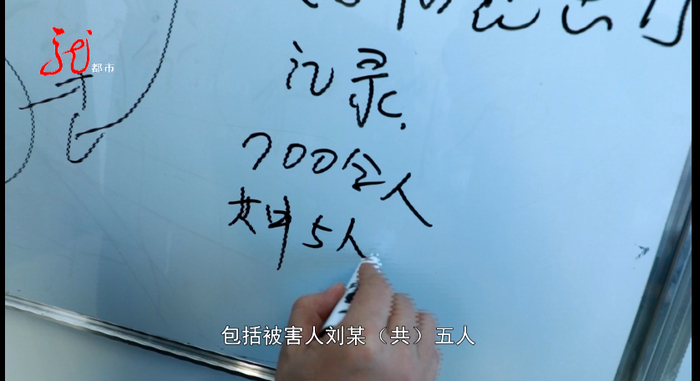 龙
都市
记录
700余人
其中5人
包括被害人刘某（共）五人